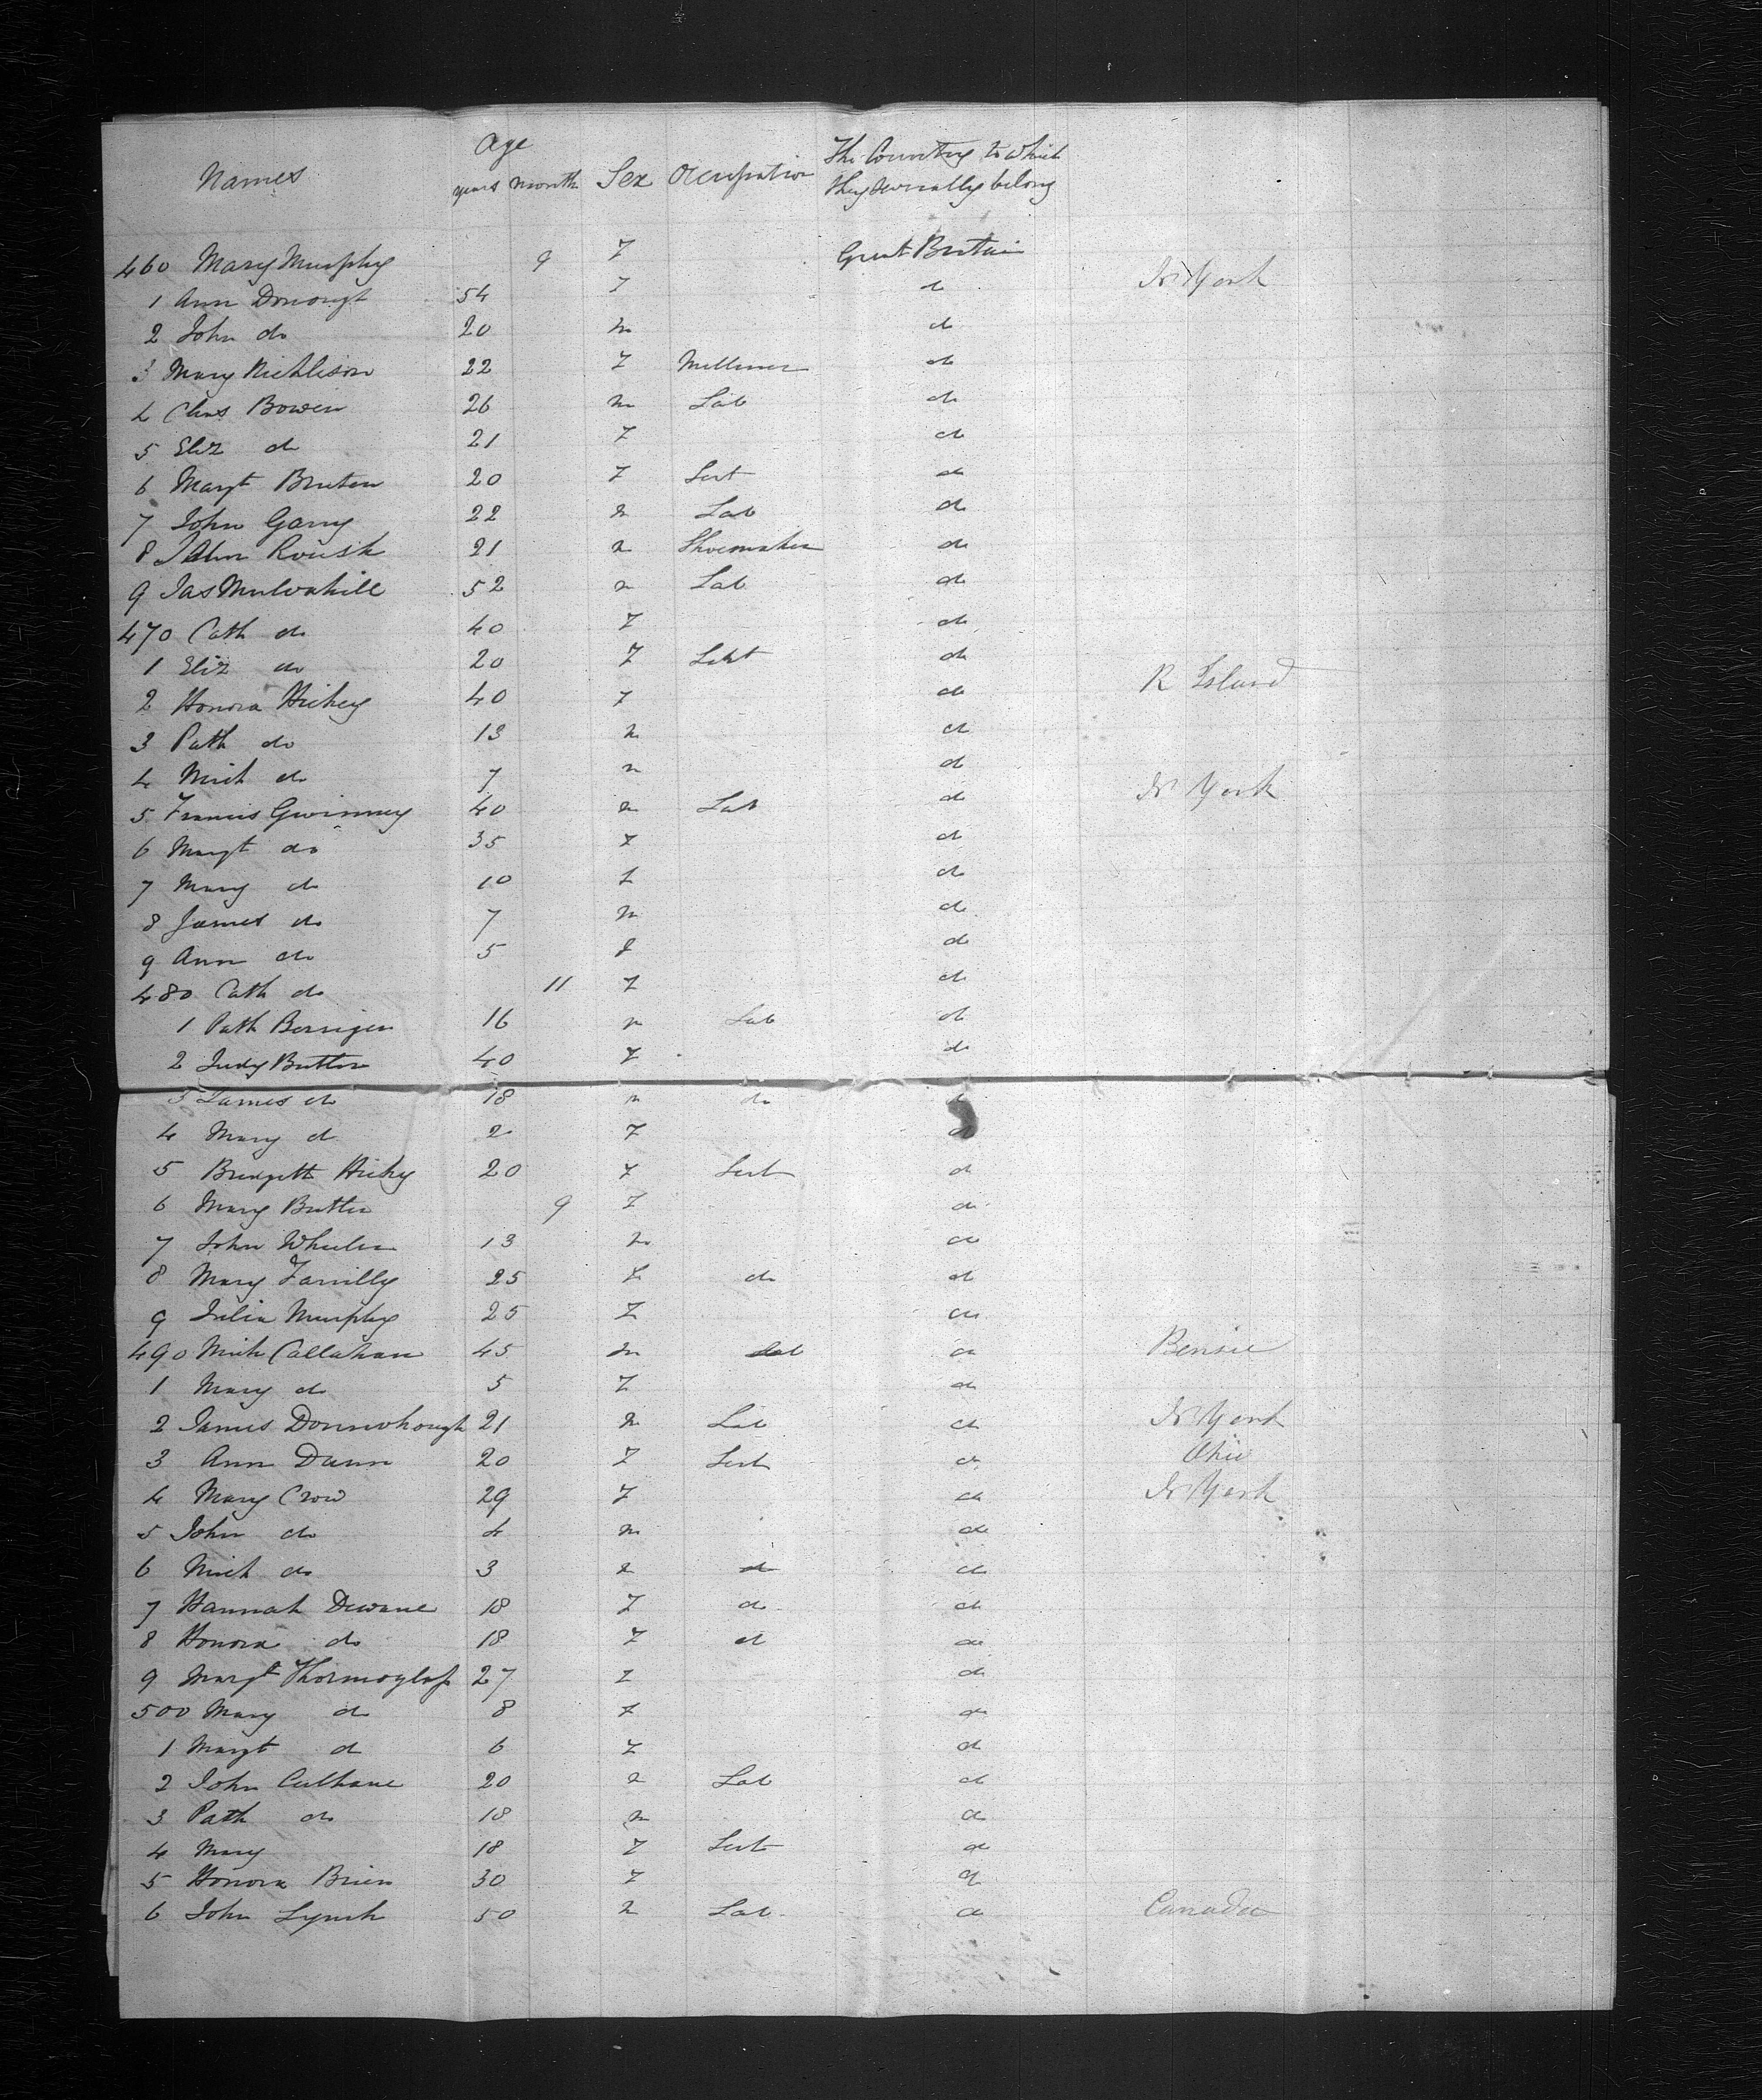 Names Age years month Sex Occupation The Country to which they severally belong
460 Mary Murphy 9 F Great Britain
1 Ann Donougt 54 F do N York
2 John do 20 m do
3 Mary Richlison 22 F Milliner do
4 Chas Bowen 26 m Lab do
5 Eliz do 21 F do
6 Margt Bruten 20 F Sert do
7 John Garry 22 m Lab do
8 John Roush 21 m Shoemaker do
9 Jas Mulvahill 52 m Lab do
470 Cath do 40 F do
1 Eliz do 20 F do
2 Honora Hickey 40 F do R Island
3 Patk do 13 m do
4 Mich do 7 m do
5 Francis Gwinney 40 m Lab do N York
6 Margt do 35 F do
7 Mary do 10 F do
8 James do 7 m do
9 Ann do 5 F do
480 Cath do 11 F do
1 Patk Berrigen 16 m Lab do
2 Judy Butler 40 F do
3 James do 18 m do do
4 Mary do 2 F do
5 Bridgett Hickey 20 F Sert do
6 Mary Butler 9 F do
7 John Wheelen 13 m do
8 Mary Farrilly 25 F do do
9 Julia Murphy 25 F do
490 Mich Callahan 45 m Lab do
1 Mary do 5 F do
2 James Donnohough 21 m Lab do N York
3 Ann Dunn 20 F Sert do Ohio
4 Mary Crow 29 F do N York
5 John do 4 m do
6 Mich do 3 m do do
7 Hannah Dewane 18 F do do
8 Honora do 18 F do do
9 Margt 27 F do
500 Mary do 8 F do
1 Margt do 6 F do
2 John Culhane 20 m Lab do
3 Patk do 18 m do
4 Mary 18 F Sert do
5 Honora Brien 30 F do
6 John Lynch 50 m Lab do Canada